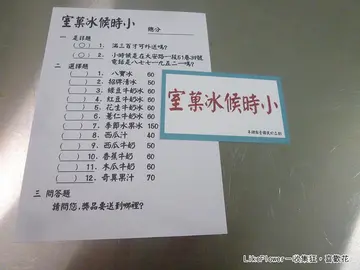 室菓冰候時小
總分
一 是非題
(○) 1. 滿三百才可外送嗎?
(○) 2. 小時候是在大安路一段51巷39號
電話是八七七一九五二一嗎?
二 選擇題
( ) 1. 八寶冰 60
( ) 2. 招牌清冰 50
( ) 3. 綠豆牛奶冰 60
( ) 4. 紅豆牛奶冰 60
( ) 5. 花生牛奶冰 60
( ) 6. 薏仁牛奶冰 60
( ) 7. 季節水果冰 150
( ) 8. 西瓜汁 40
( ) 9. 西瓜牛奶 50
( ) 10. 香蕉牛奶 60
( ) 11. 木瓜牛奶 60
( ) 12. 奇異果汁 70
三 問答題
請問您,獎品要送到哪裡?
室菓冰候時小
LikeFlower—收集狂,喜歡花